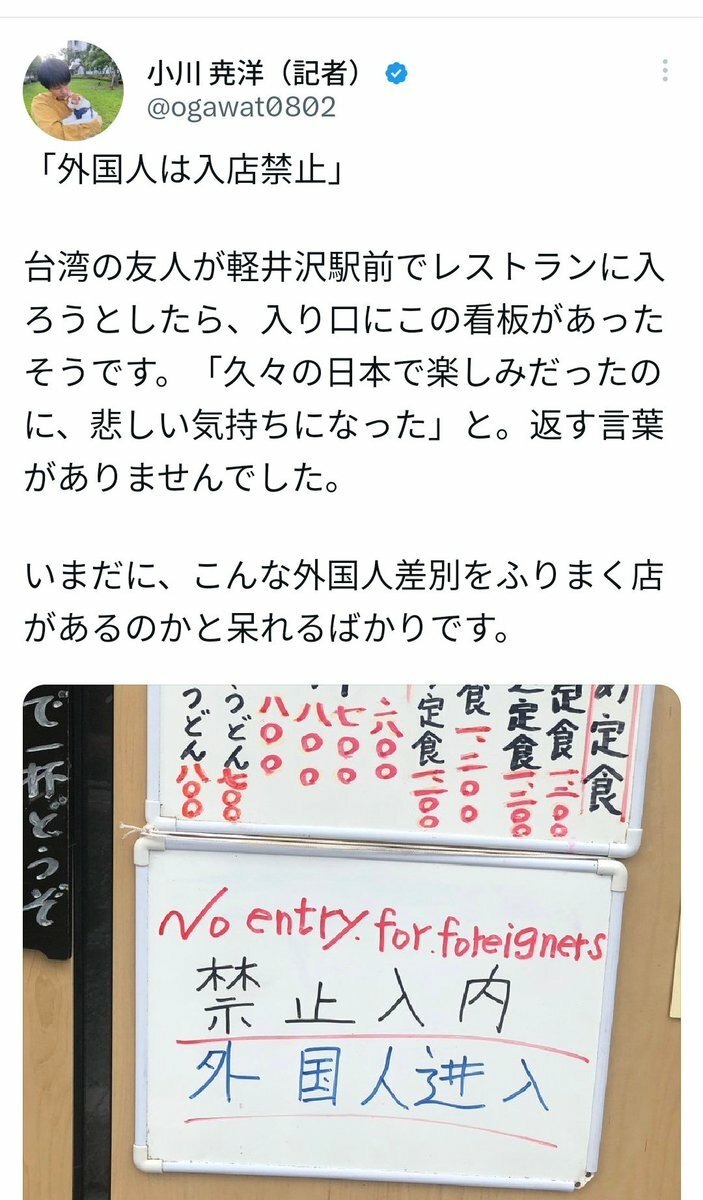 小川 尭洋（記者）
@ogawat0802
「外国人は入店禁止」
台湾の友人が軽井沢駅前でレストランに入
ろうとしたら、入り口にこの看板があった
そうです。「久々の日本で楽しみだったの
に、悲しい気持ちになった」と。返す言葉
がありませんでした。
いまだに、こんな外国人差別をふりまく店
があるのかと呆れるばかりです。
定食
定食
定食
食
定食
八〇〇
七〇〇
八〇〇
八〇〇
うどん 七〇〇
うどん 八〇〇
で一杯どうぞ
No entry.for.foreigners
禁止入内
外国人进入